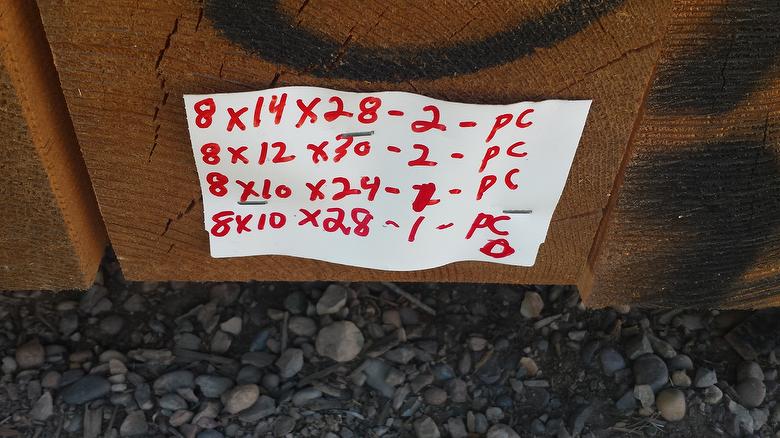 8x14x28-2-PC
8x12x30-2-PC
8x10x24- -PC
8x10x28-1-PC